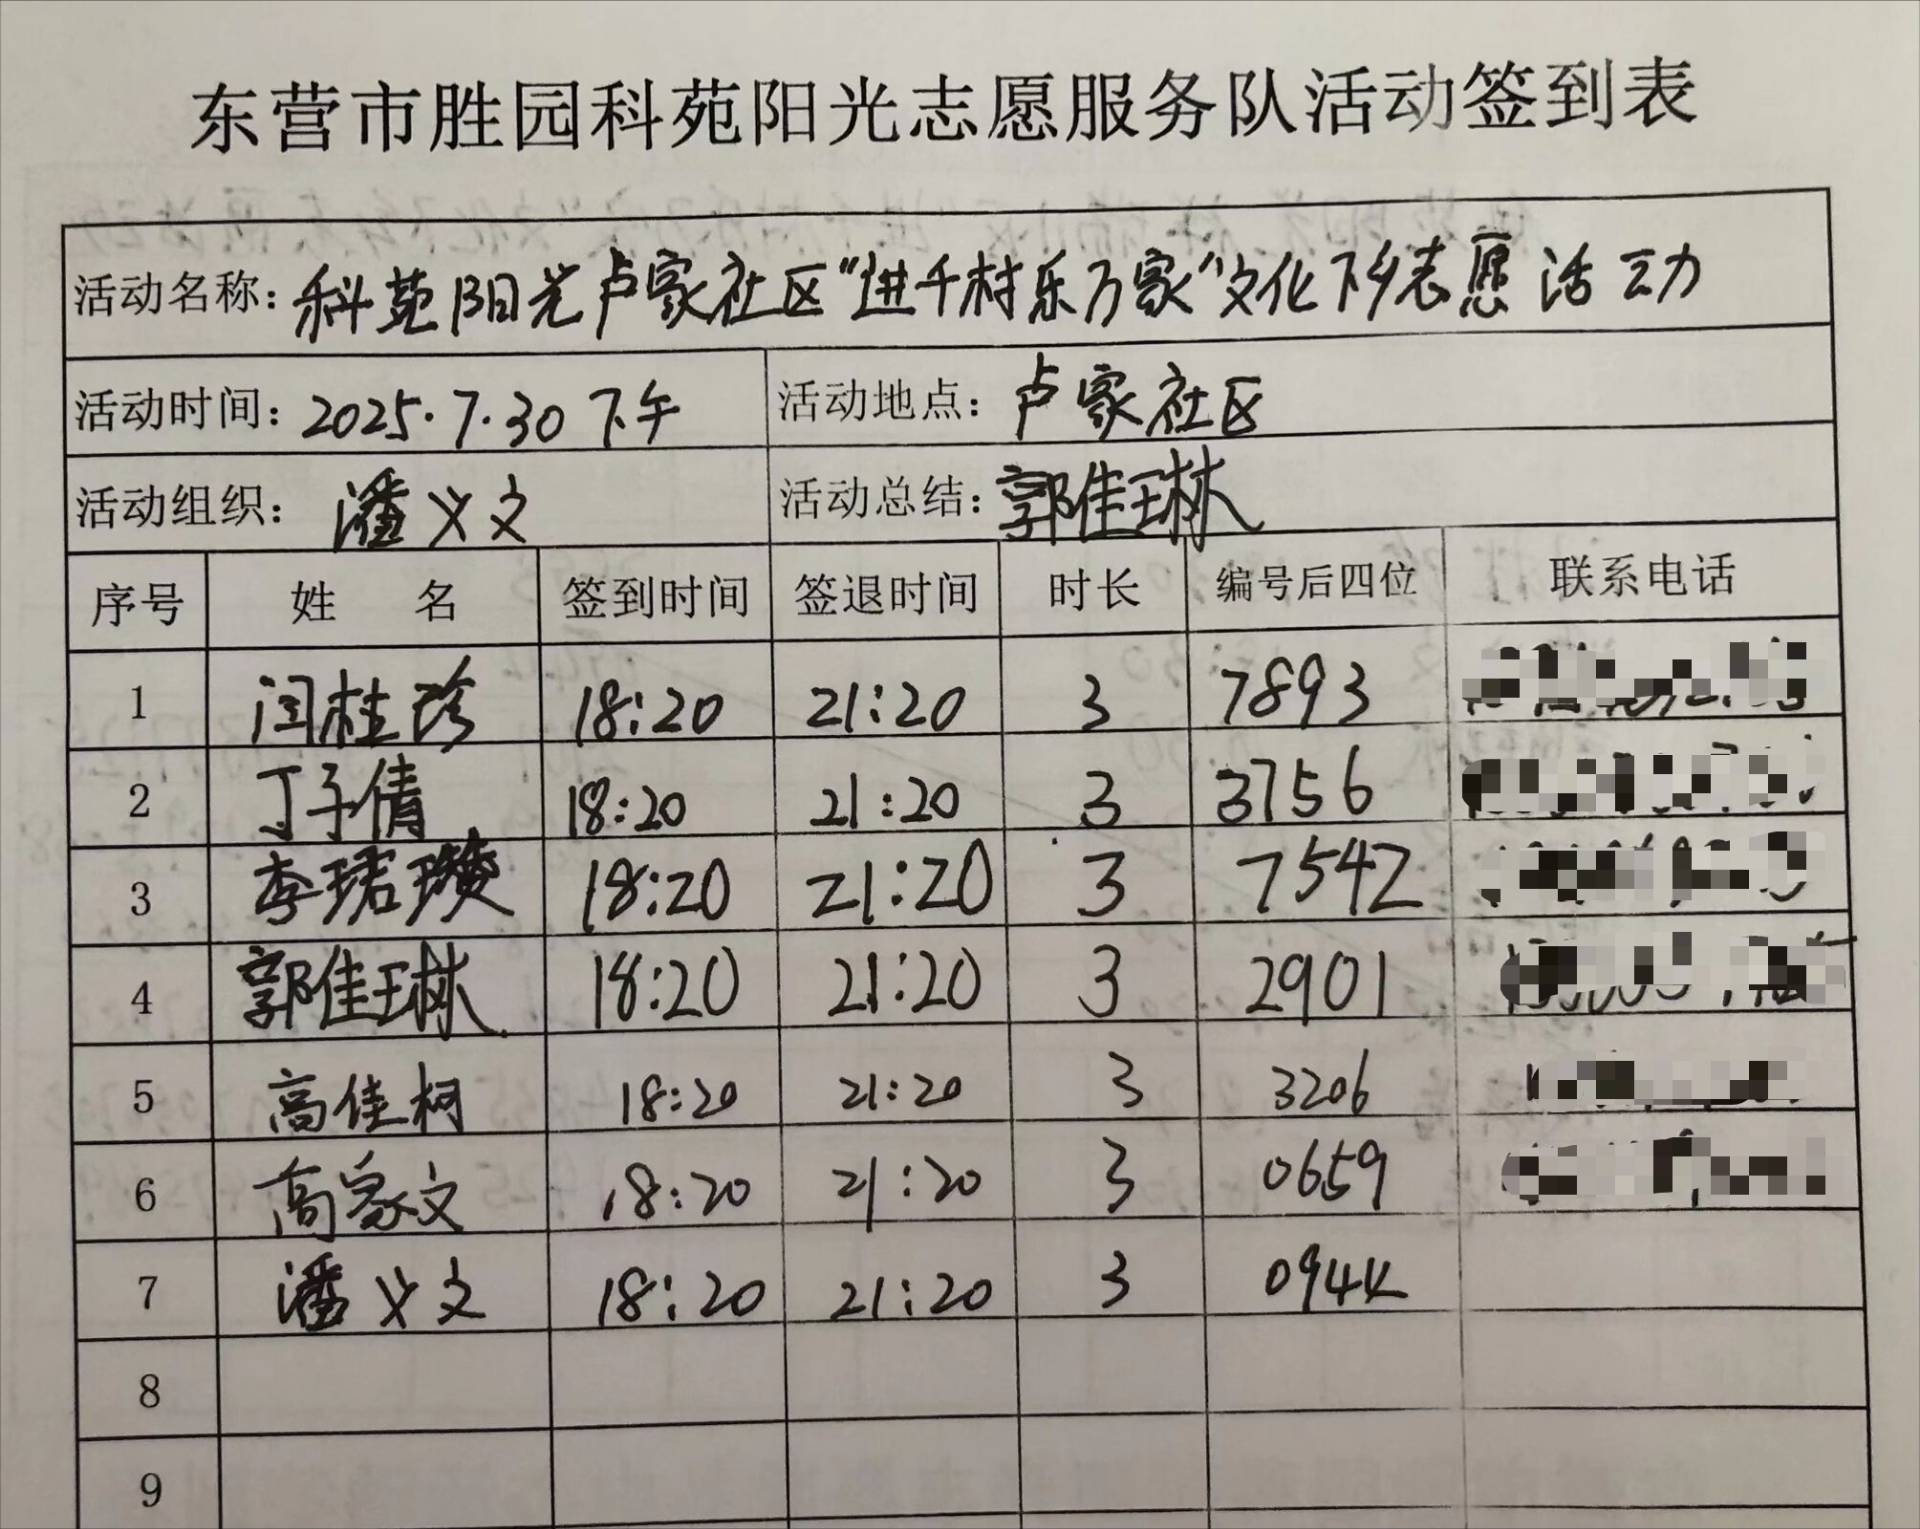 东营市胜园科苑阳光志愿服务队活动签到表
活动名称：科苑阳光卢家社区“进千村乐万家”文化下乡志愿活动
活动时间：2025.7.30下午 活动地点：卢家社区
活动组织：潘义文 活动总结：郭佳琳
序号 姓 名 签到时间 签退时间 时长 编号后四位 联系电话
1 闫桂珍 18:20 21:20 3 7893
2 丁子倩 18:20 21:20 3 3756
3 李珺 18:20 21:20 3 7542
4 郭佳琳 18:20 21:20 3 2901
5 高佳柯 18:20 21:20 3 3206
6 高家文 18:20 21:20 3 0659
7 潘义文 18:20 21:20 3 094X
8
9